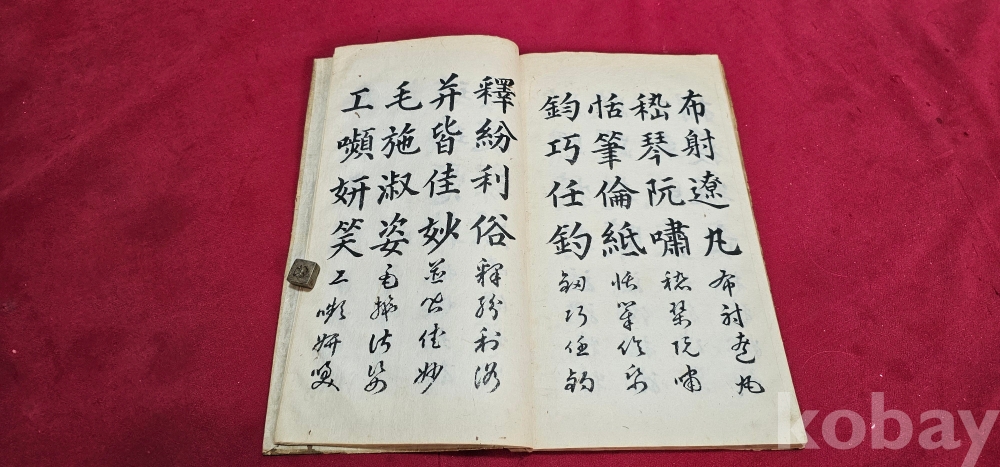 布射遼丸布射遼丸
嵇琴阮嘯嵇琴阮嘯
恬筆倫紙恬筆倫紙
鈞巧任釣鈞巧任釣
釋紛利俗釋紛利俗
并皆佳妙並皆佳妙
毛施淑姿毛施淑姿
工嚬妍笑工嚬妍笑
kobay